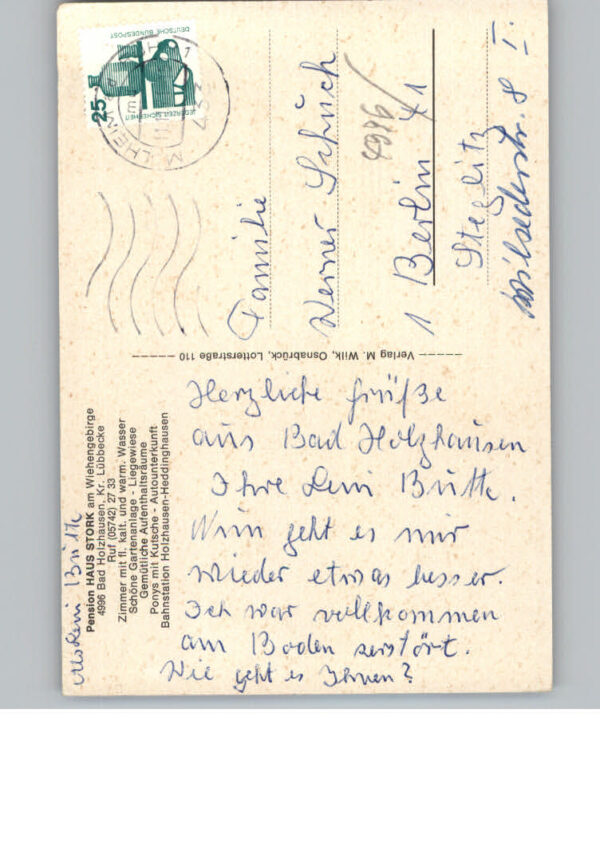 Pension HAUS STORK am Wiehengebirge
4996 Bad Holzhausen, Kr. Lübbecke
Ruf (05742) 27 33
Zimmer mit fl. kalt. und warm. Wasser
Schöne Gartenanlage - Liegewiese
Gemütliche Aufenthaltsräume
Ponys mit Kutsche - Autounterkunft
Bahnstation Holzhausen-Heddinghausen
Leni Butte
Herzliche Grüße
aus Bad Holzhausen
Ihre Leni Butte.
Nun geht es mir
wieder etwas besser.
Ich war vollkommen
am Boden zerstört.
Wie geht es Ihnen?
Verlag M. Wilk, Osnabrück, Lotterstraße 110
DEUTSCHE BUNDESPOST
25
JEDERZEIT SICHERHEIT
433
Familie
Werner Schuch
1 Berlin 41
Steglitz
Wilsederstr. 8 I.